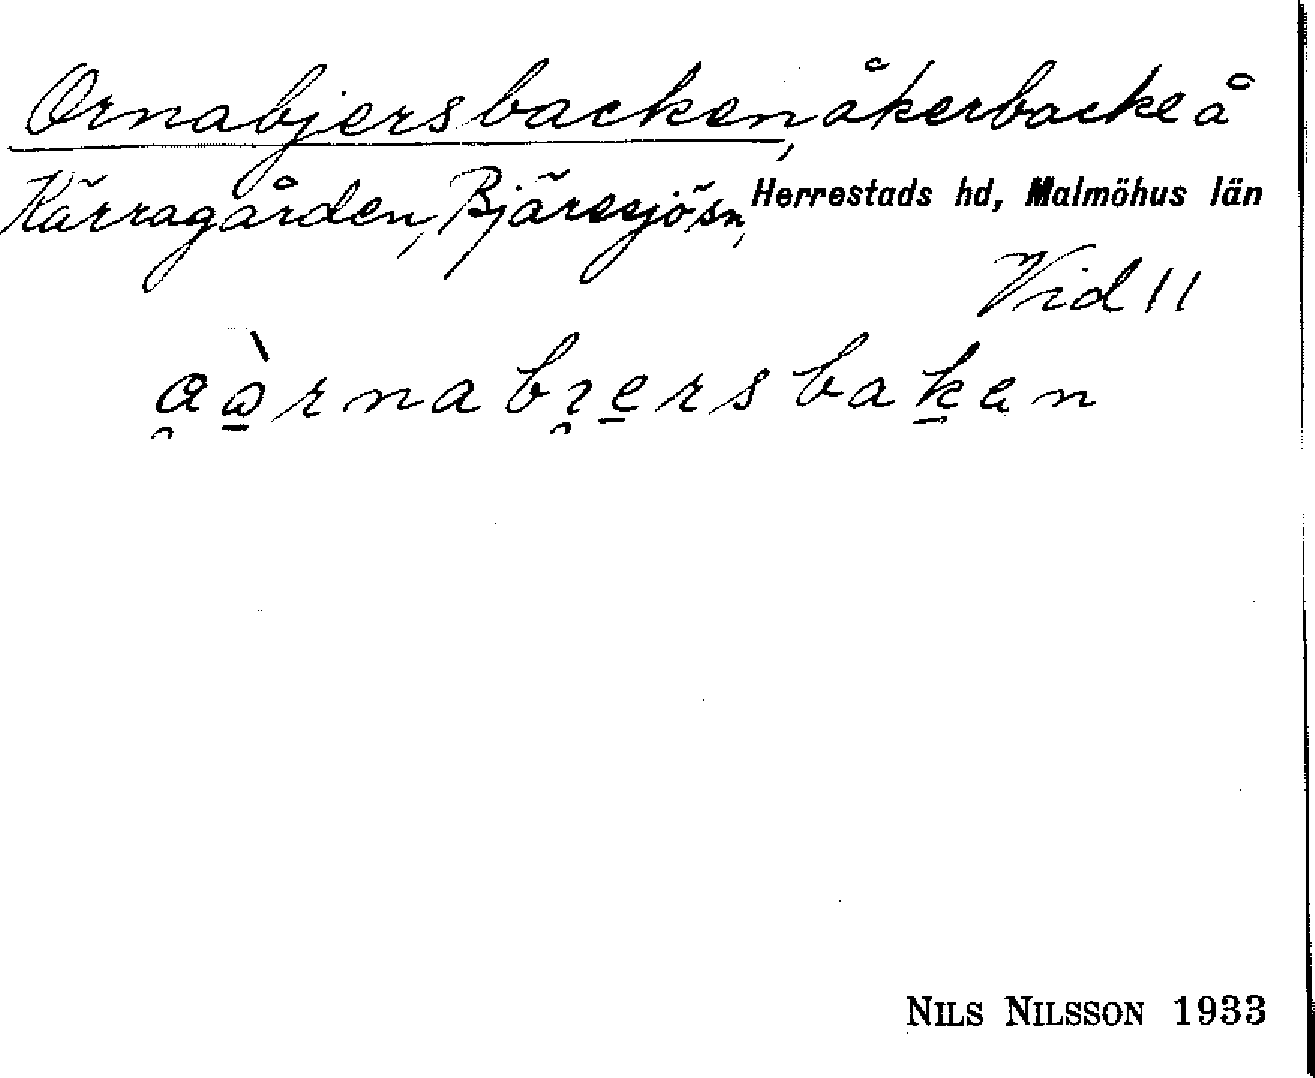 Ornabjersbacken, åkerbacke å
Kärragården, Bjäresjö sn, Herrestads hd, Malmöhus län
Vid 11
NILS NILSSON 1933